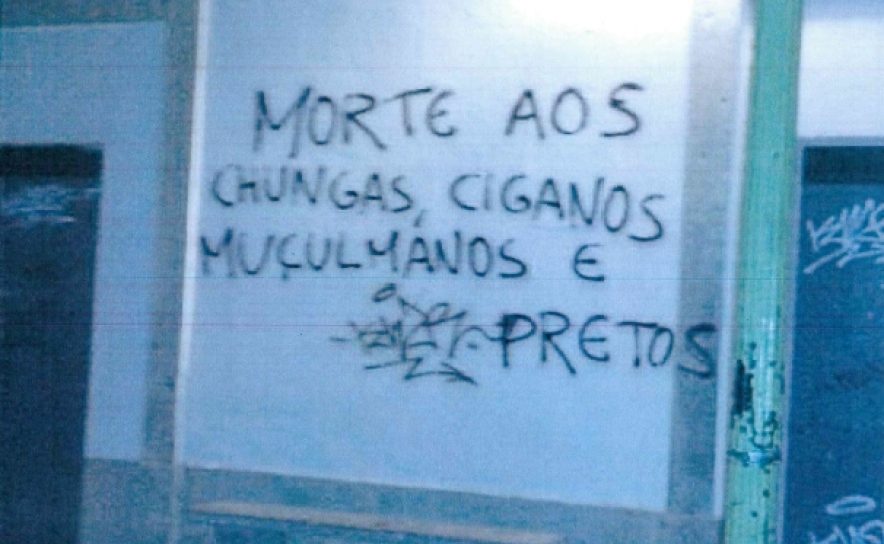 MORTE AOS
CHUNGAS, CIGANOS
MUÇULMANOS E
PRETOS